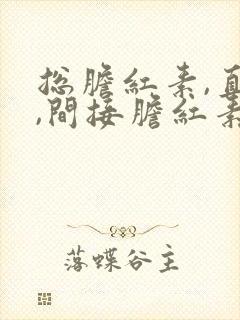 总膽紅素,直
,間接膽紅素
落蝶谷主